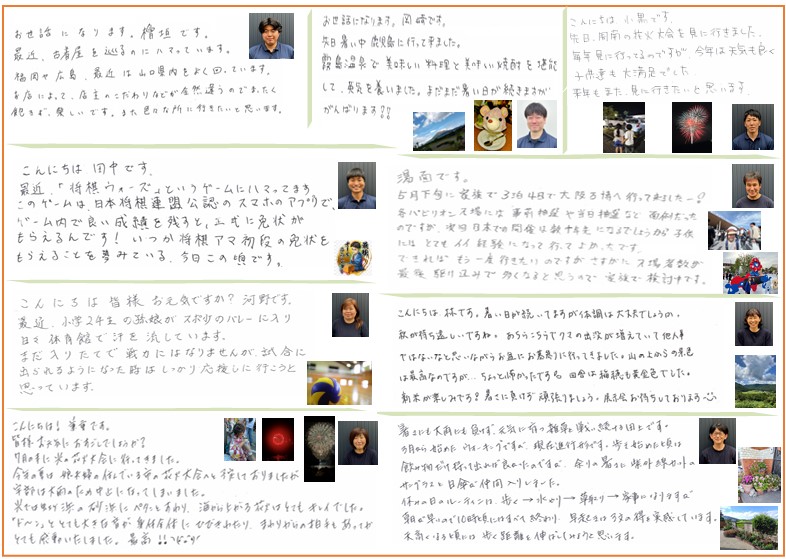 お世話になります。檜垣です。
最近、古着屋を巡るのにハマっています。
福岡や広島、最近は山口県内をよく回っています。
お店によって、店主のこだわりなどが全然違うのでまったく
飽きず、楽しいです。また色々な所に行きたいと思います。
お世話になります。岡崎です。
先日暑い中鹿児島に行って来ました。
霧島温泉で美味しい料理と美味しい焼酎を堪能
して、英気を養いました。まだまだ暑い日が続きますが
がんばります!!
こんにちは、小黒です。
先日、周南の花火大会を見に行きました。
毎年見に行ってるのですが、今年は天気も良く
子供達も大満足でした。
来年もまた、見に行きたいと思います。
こんにちは 田中です。
最近、「将棋ウォーズ」というゲームにハマってます。
このゲームは、日本将棋連盟公認のスマホのアプリで、
ゲーム内で良い成績を残すと、正式に免状が
もらえるんです! いつか将棋アマ初段の免状を
もらえることを夢みている、今日この頃です。
湯面です。
5月下旬に家族で3泊4日で大阪万博へ行って来ましたー!
各パビリオン入場には事前抽選や当日抽選など面倒だった
のですが、次回日本での開催は数十年先になるでしょうから子供
にはとてもイイ経験になって行ってよかったです。
できればもう一度行きたいのですがさすがに入場者数が
最後駆け込みで多くなると思うので家族で検討中です。
こんにちは 皆様 お元気ですか? 河野です。
最近、小学2年生の孫娘がスポ少のバレーに入り
日々体育館で汗を流しています。
まだ入りたてで戦力にはなりませんが、試合に
出られるようになった時はしっかり応援しに行こうと
思っています。
こんにちは 林です。暑い日が続いてますが体調は大丈夫でしょうか。
秋が待ち遠しいですね。あちらこちらでクマの出没が増えていて他人事
ではないなと思いながらお盆にお墓参りに行ってきました。山の上からの景色
は最高なのですが… ちょっと怖かったです 田舎は稲穂も黄金色でした。
新米が楽しみです? 暑さに負けず頑張りましょう。展示会お待ちしております
こんにちは!
皆様お元気にお過ごしでしょうか?
7月の末に光の花火大会に行ってきました。
今年の夏は娘夫婦の住んでいる市の花火大会へと予定しておりましたが
大雨のため中止になってしまいました。
光では虹ヶ浜の砂浜にペタンとすわり、海から上がる花火はとてもキレイでした。
「ドーン」ととても大きな音が身体全体にひびきわたり、まわりからの拍手もあってか
とても感動いたしました。最高!!
暑さにも大雨にも負けず、元気に育つ雑草と戦い続ける田上です。
3月から始めたウォーキングですが、現在進行形です。歩き始めた頃は
飲み物だけ持って出れば良かったのですが、余りの暑さに紫外線カットの
サングラスと日傘が仲間入りしました。
休みの日のルーティンは、歩く→水やり→草取り→家事になりますが
朝が早いので10時頃にはすべて終わり、早起きは3文の得を実感しています。
涼しくなる頃には歩く距離を伸ばしてみようと思います。